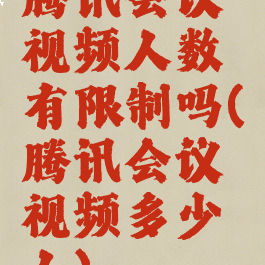 腾讯会议
视频人数
有限制吗(
腾讯会议
视频多少
人)